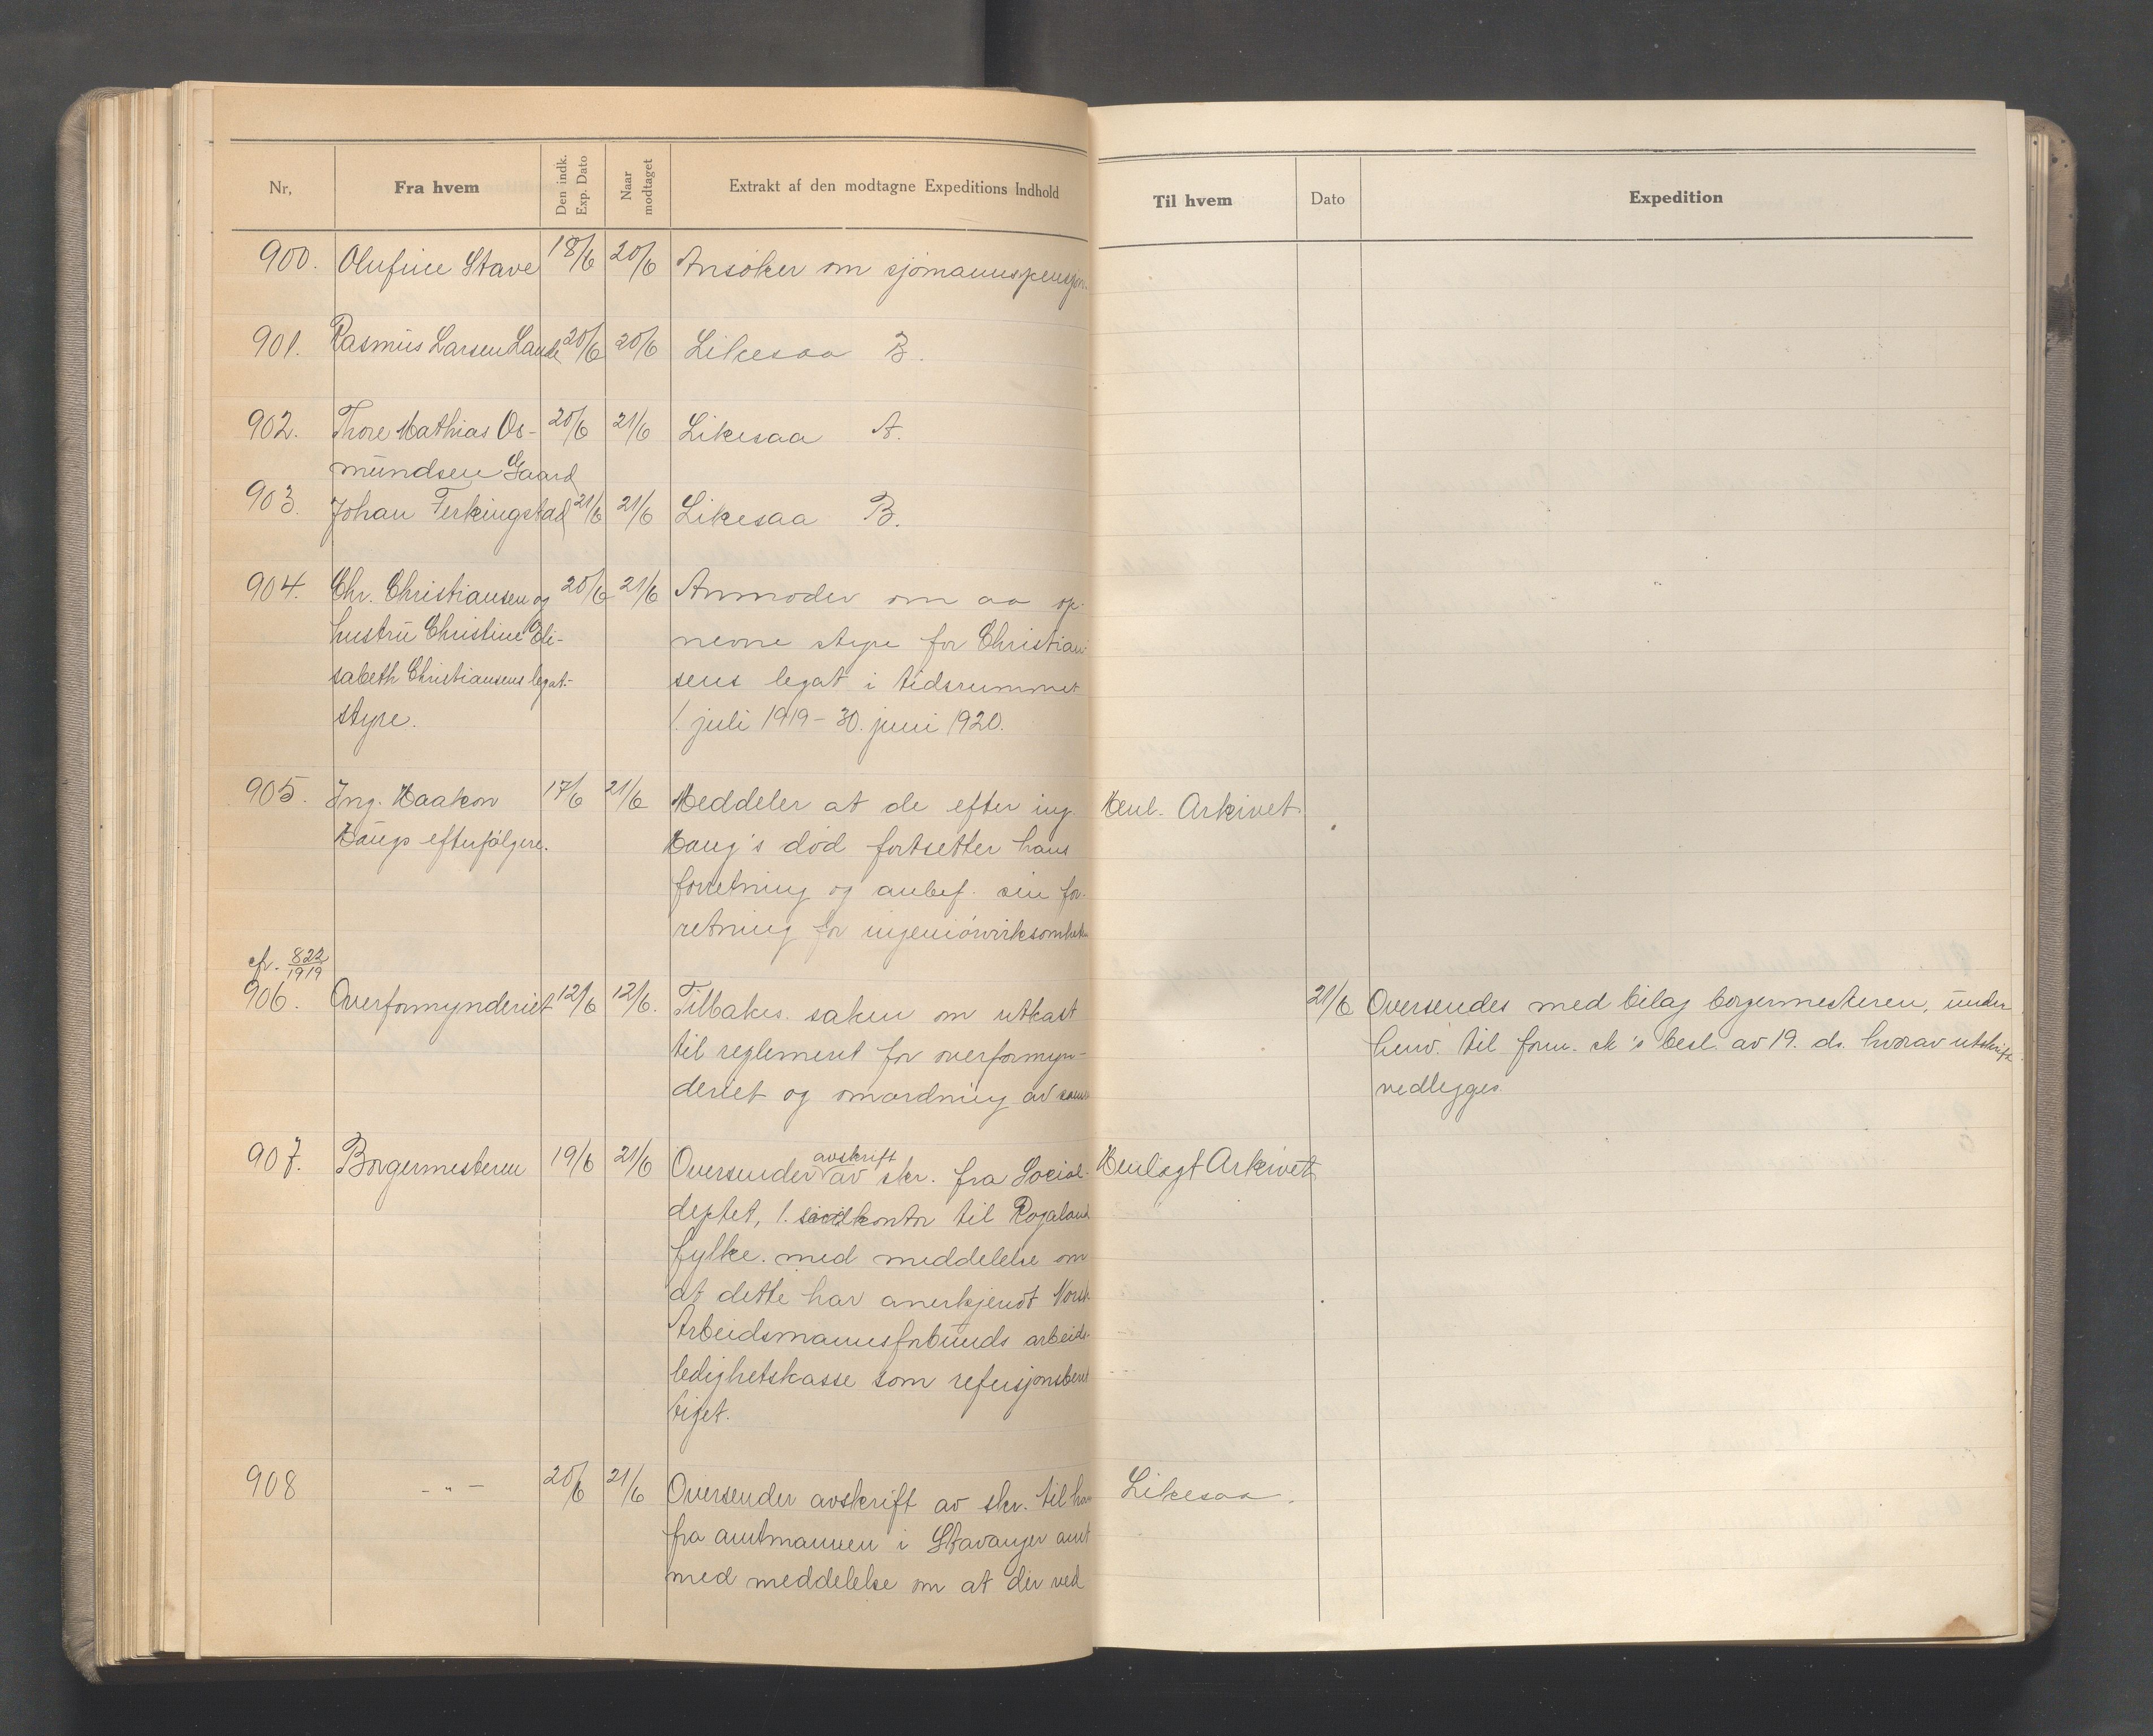 Nr.
Fra hvem
Den indk. Exp. Dato
Naar modtaget
Extrakt af den modtagne Expeditions Indhold
Til hvem
Dato
Expedition
900. Olufine Stave 18/6 20/6 Ansöker om sjömannspensjon.
901. Rasmus Larsen Lande 20/6 20/6 Likesaa B.
902. Thore Mathias Os- 20/6 21/6 Likesaa A.
mundsen Gaard
903. Johan Ferkingstad 21/6 21/6 Likesaa B.
904. Chr. Christiansen og 20/6 21/6 Anmoder om aa op-
hustru Christine Eli- nevne styre for Christian-
sabeth Christiansens legat- sens legat i tidsrummet
styre. 1. juli 1919 - 30. juni 1920.
905. Ing. Haakon 17/6 21/6 Meddeler at de efter ing. Henl. Arkivet.
Haugs efterfölgere. Haug's död fortsetter hans
forretning og anbef. sin for-
retning for ingeniörvirksomheten
cfr. 822/1919
906. Overformynderiet 12/6 12/6. Tilbakes. saken om utkast 21/6 Oversendes med bilag borgermesteren, under
til reglement for overformyn- henv. til form. sk's besl. av 19. ds. hvorav utskrift
deriet og omordning av samme vedlegges.
907. Borgermesteren 19/6 21/6 Oversender avskrift av skr. fra Social- Henlagt Arkivet
deptet, 1. kontor til Rogaland
fylke. med meddelelse om
at dette har anerkjendt Norsk
Arbeidsmannsforbunds arbeids-
ledighetskasse som refusjonsberet
tiget.
908 - " - 20/6 21/6 Oversender avskrift av skr. til ham Likesaa.
fra amtmannen i Stavanger amt
med meddelelse om at der ved